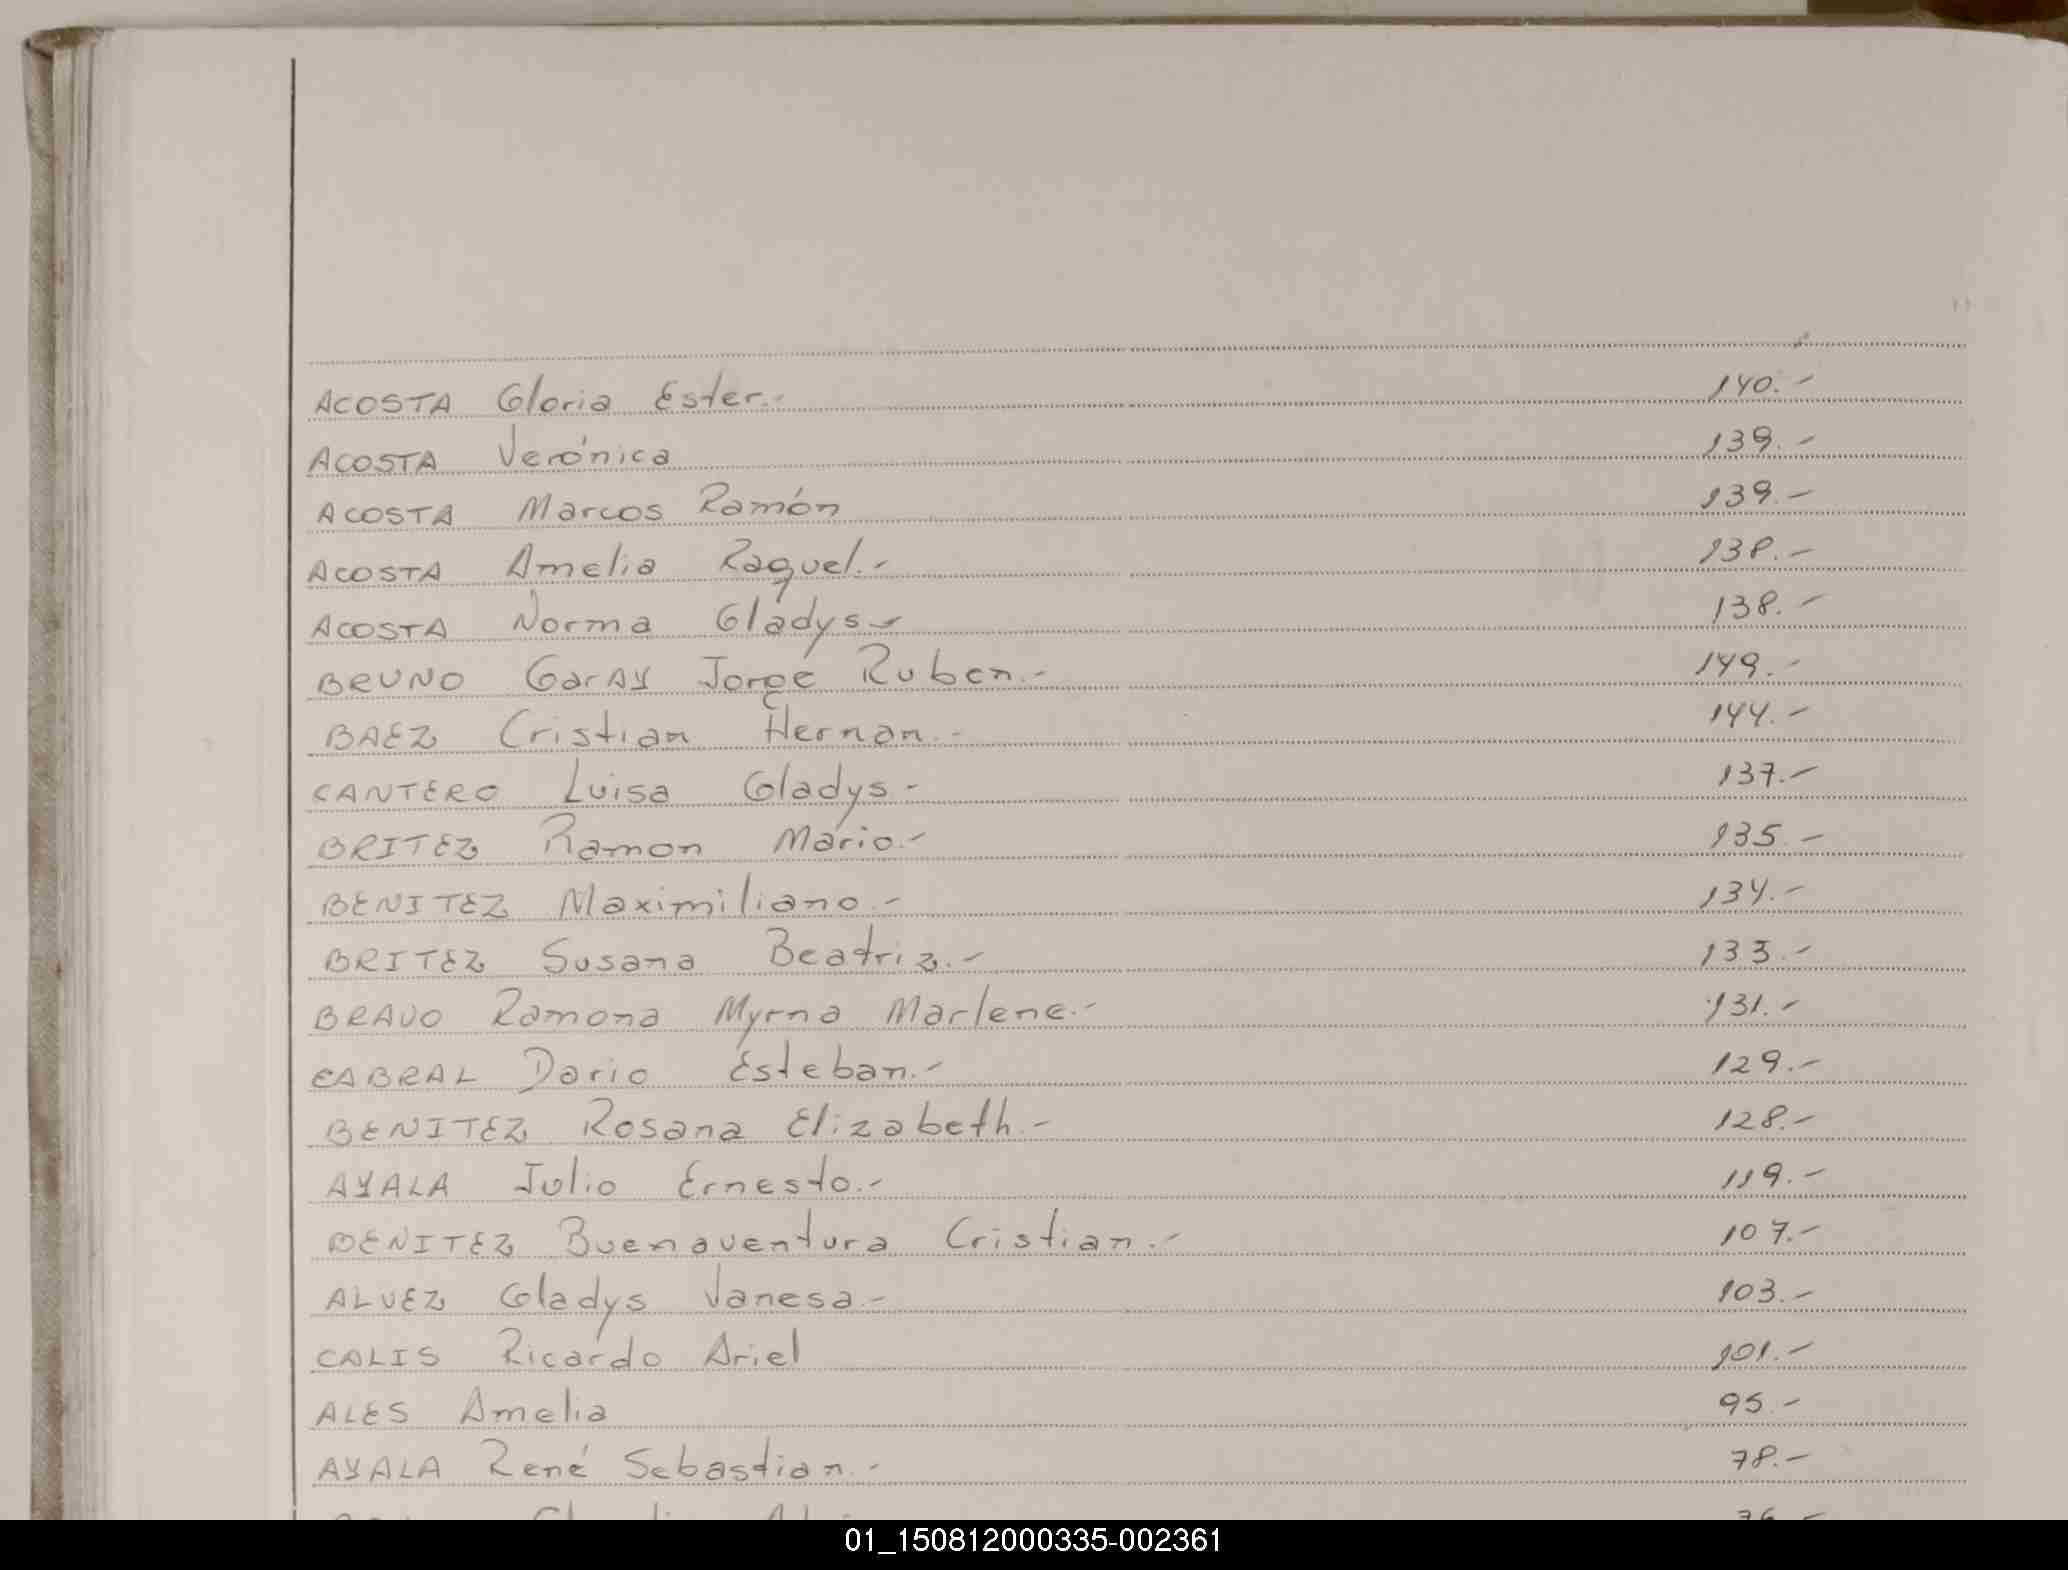 ACOSTA Gloria Ester.- 140.-
ACOSTA Verónica 139.-
ACOSTA Marcos Ramón 139.-
ACOSTA Amelia Raquel.- 138.-
ACOSTA Norma Gladys.- 138.-
BRUNO Garay Jorge Ruben.- 149.-
BAEZ Cristian Hernan.- 144.-
CANTERO Luisa Gladys.- 137.-
BRITEZ Ramon Mario.- 135.-
BENITEZ Maximiliano.- 134.-
BRITEZ Susana Beatriz.- 133.-
BRAVO Ramona Myrna Marlene.- 131.-
CABRAL Dario Esteban.- 129.-
BENITEZ Rosana Elizabeth.- 128.-
AYALA Julio Ernesto.- 119.-
BENITEZ Buenaventura Cristian.- 107.-
ALVEZ Gladys Vanesa.- 103.-
CALIS Ricardo Ariel 101.-
ALES Amelia 95.-
AYALA René Sebastian.- 78.-
01_150812000335-002361